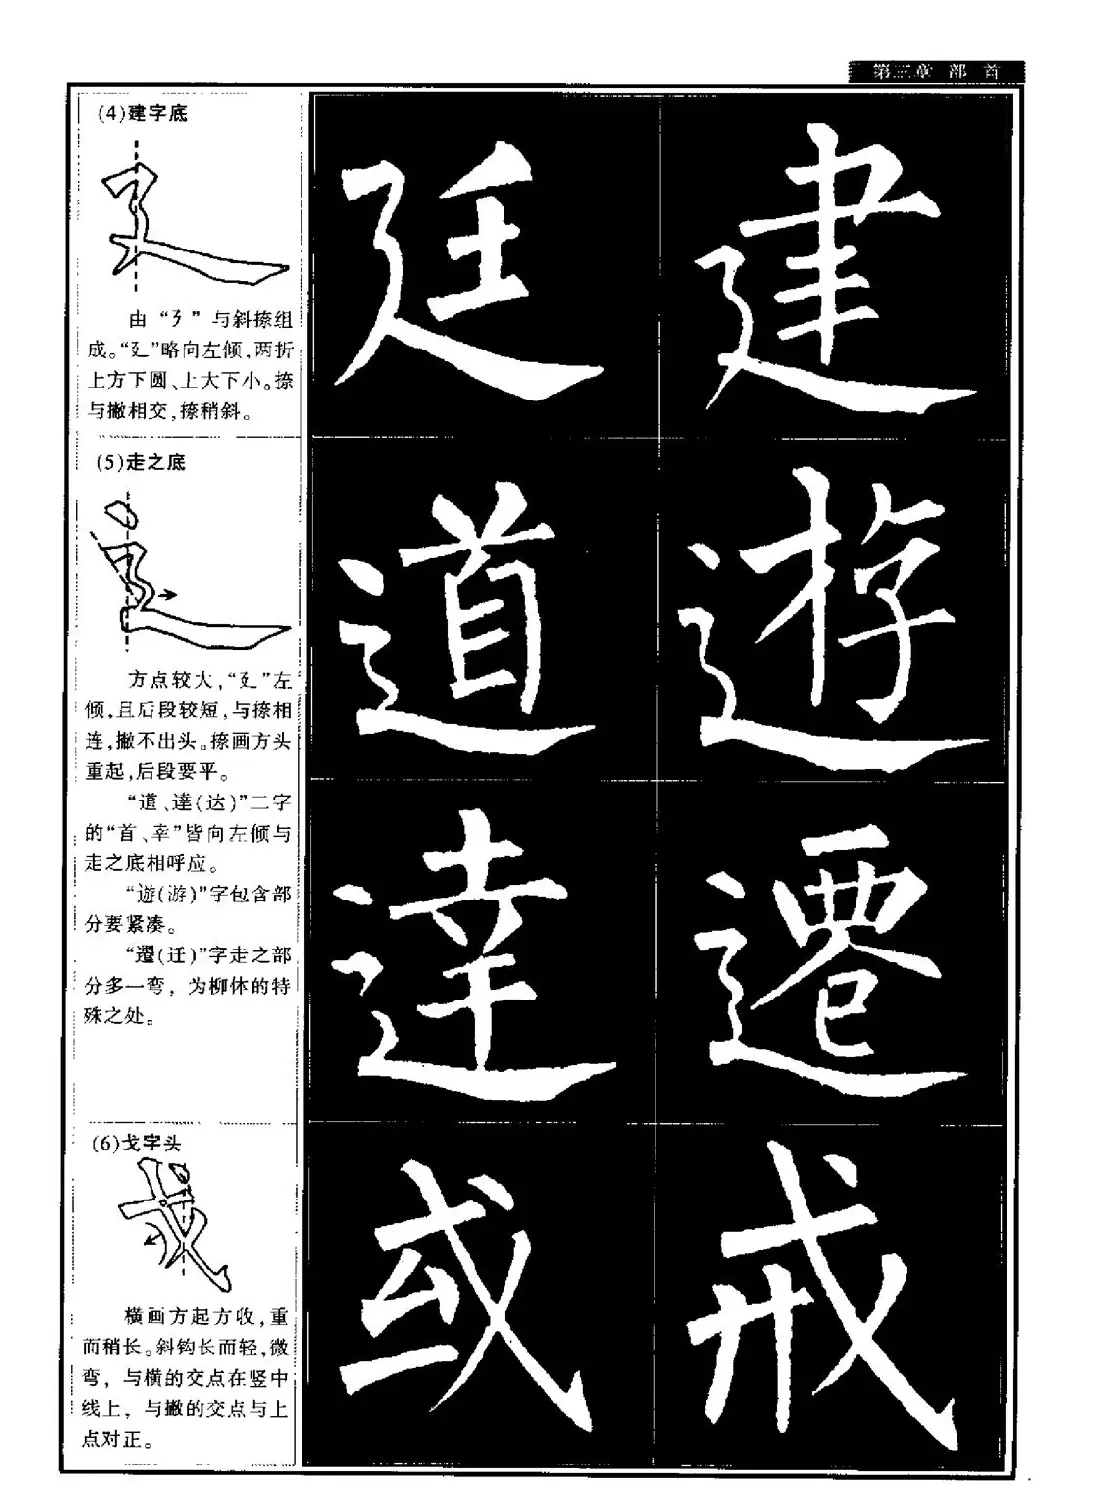 第三章 部 首
(4)建字底
由“㇋”与斜捺组
成。“廴”略向左倾,两折
上方下圆、上大下小。捺
与撇相交,捺稍斜。
廷 建
(5)走之底
方点较大,“廴”左
倾,且后段较短,与捺相
连,撇不出头。捺画方头
重起,后段要平。
“道、達(达)”二字
的“首、幸”皆向左倾与
走之底相呼应。
“遊(游)”字包含部
分要紧凑。
“遷(迁)”字走之部
分多一弯，为柳体的特
殊之处。
道 遊
達 遷
(6)戈字头
横画方起方收,重
而稍长。斜钩长而轻,微
弯，与横的交点在竖中
线上，与撇的交点与上
点对正。
或 戒